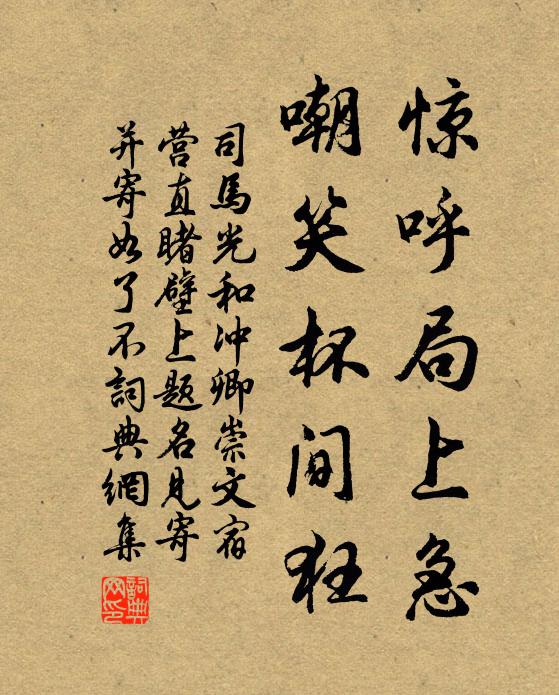 惊呼局上急
嘲笑杯间狂
司馬光和冲卿崇文宿
营直睹壁上题名见寄
并寄如了不詞典網集
詞典网印